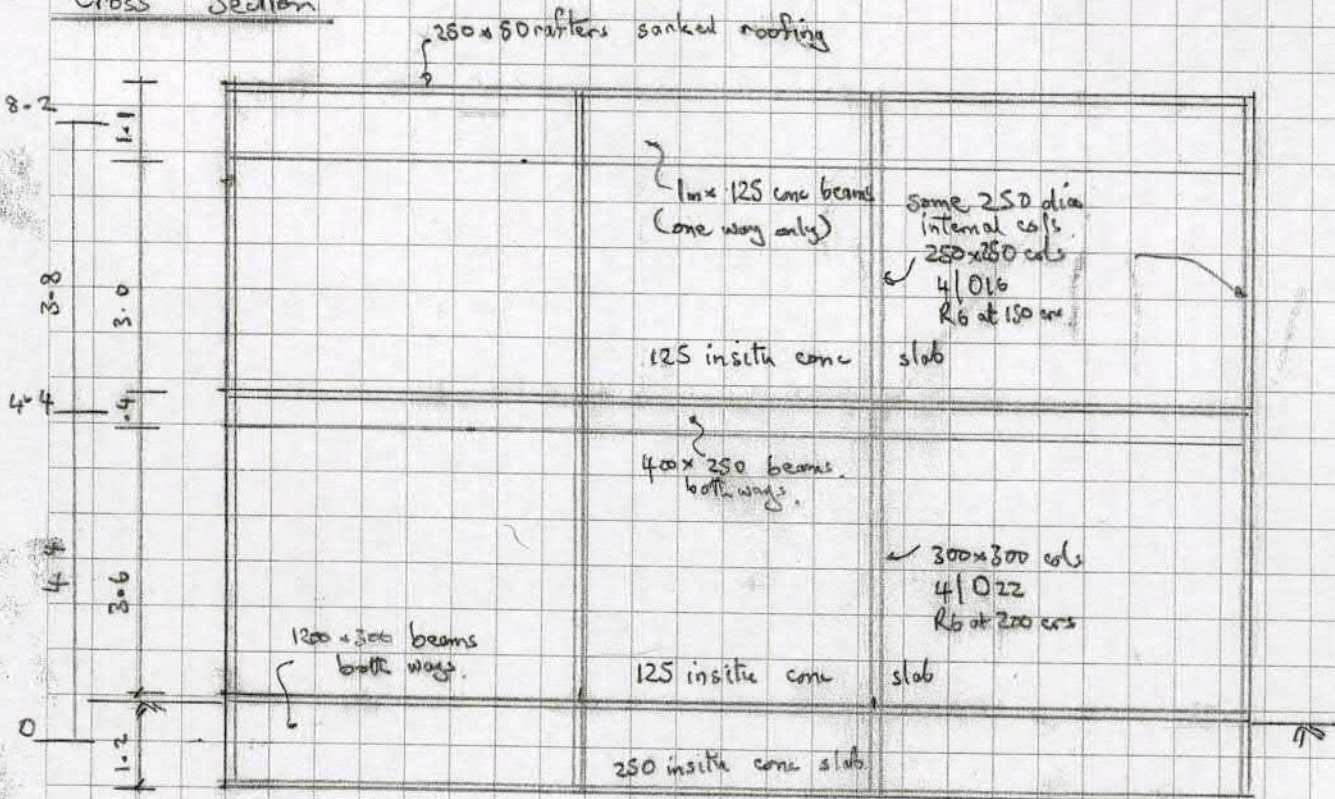 Cross Section
250 x 50 rafters sanked roofing
8-2
1.1
1m x 125 conc beams
(one way only)
some 250 dia
internal cols.
250x250 cols
4/016
R6 at 150 crs
3-8
3.0
125 insitu conc slab
4-4
.4
400 x 250 beams
both ways.
4.4
3.6
300x300 cols
4/022
R6 at 200 crs
1200 x 300 beams
both ways.
125 insitu conc slab
0
1.2
250 insitu conc slab